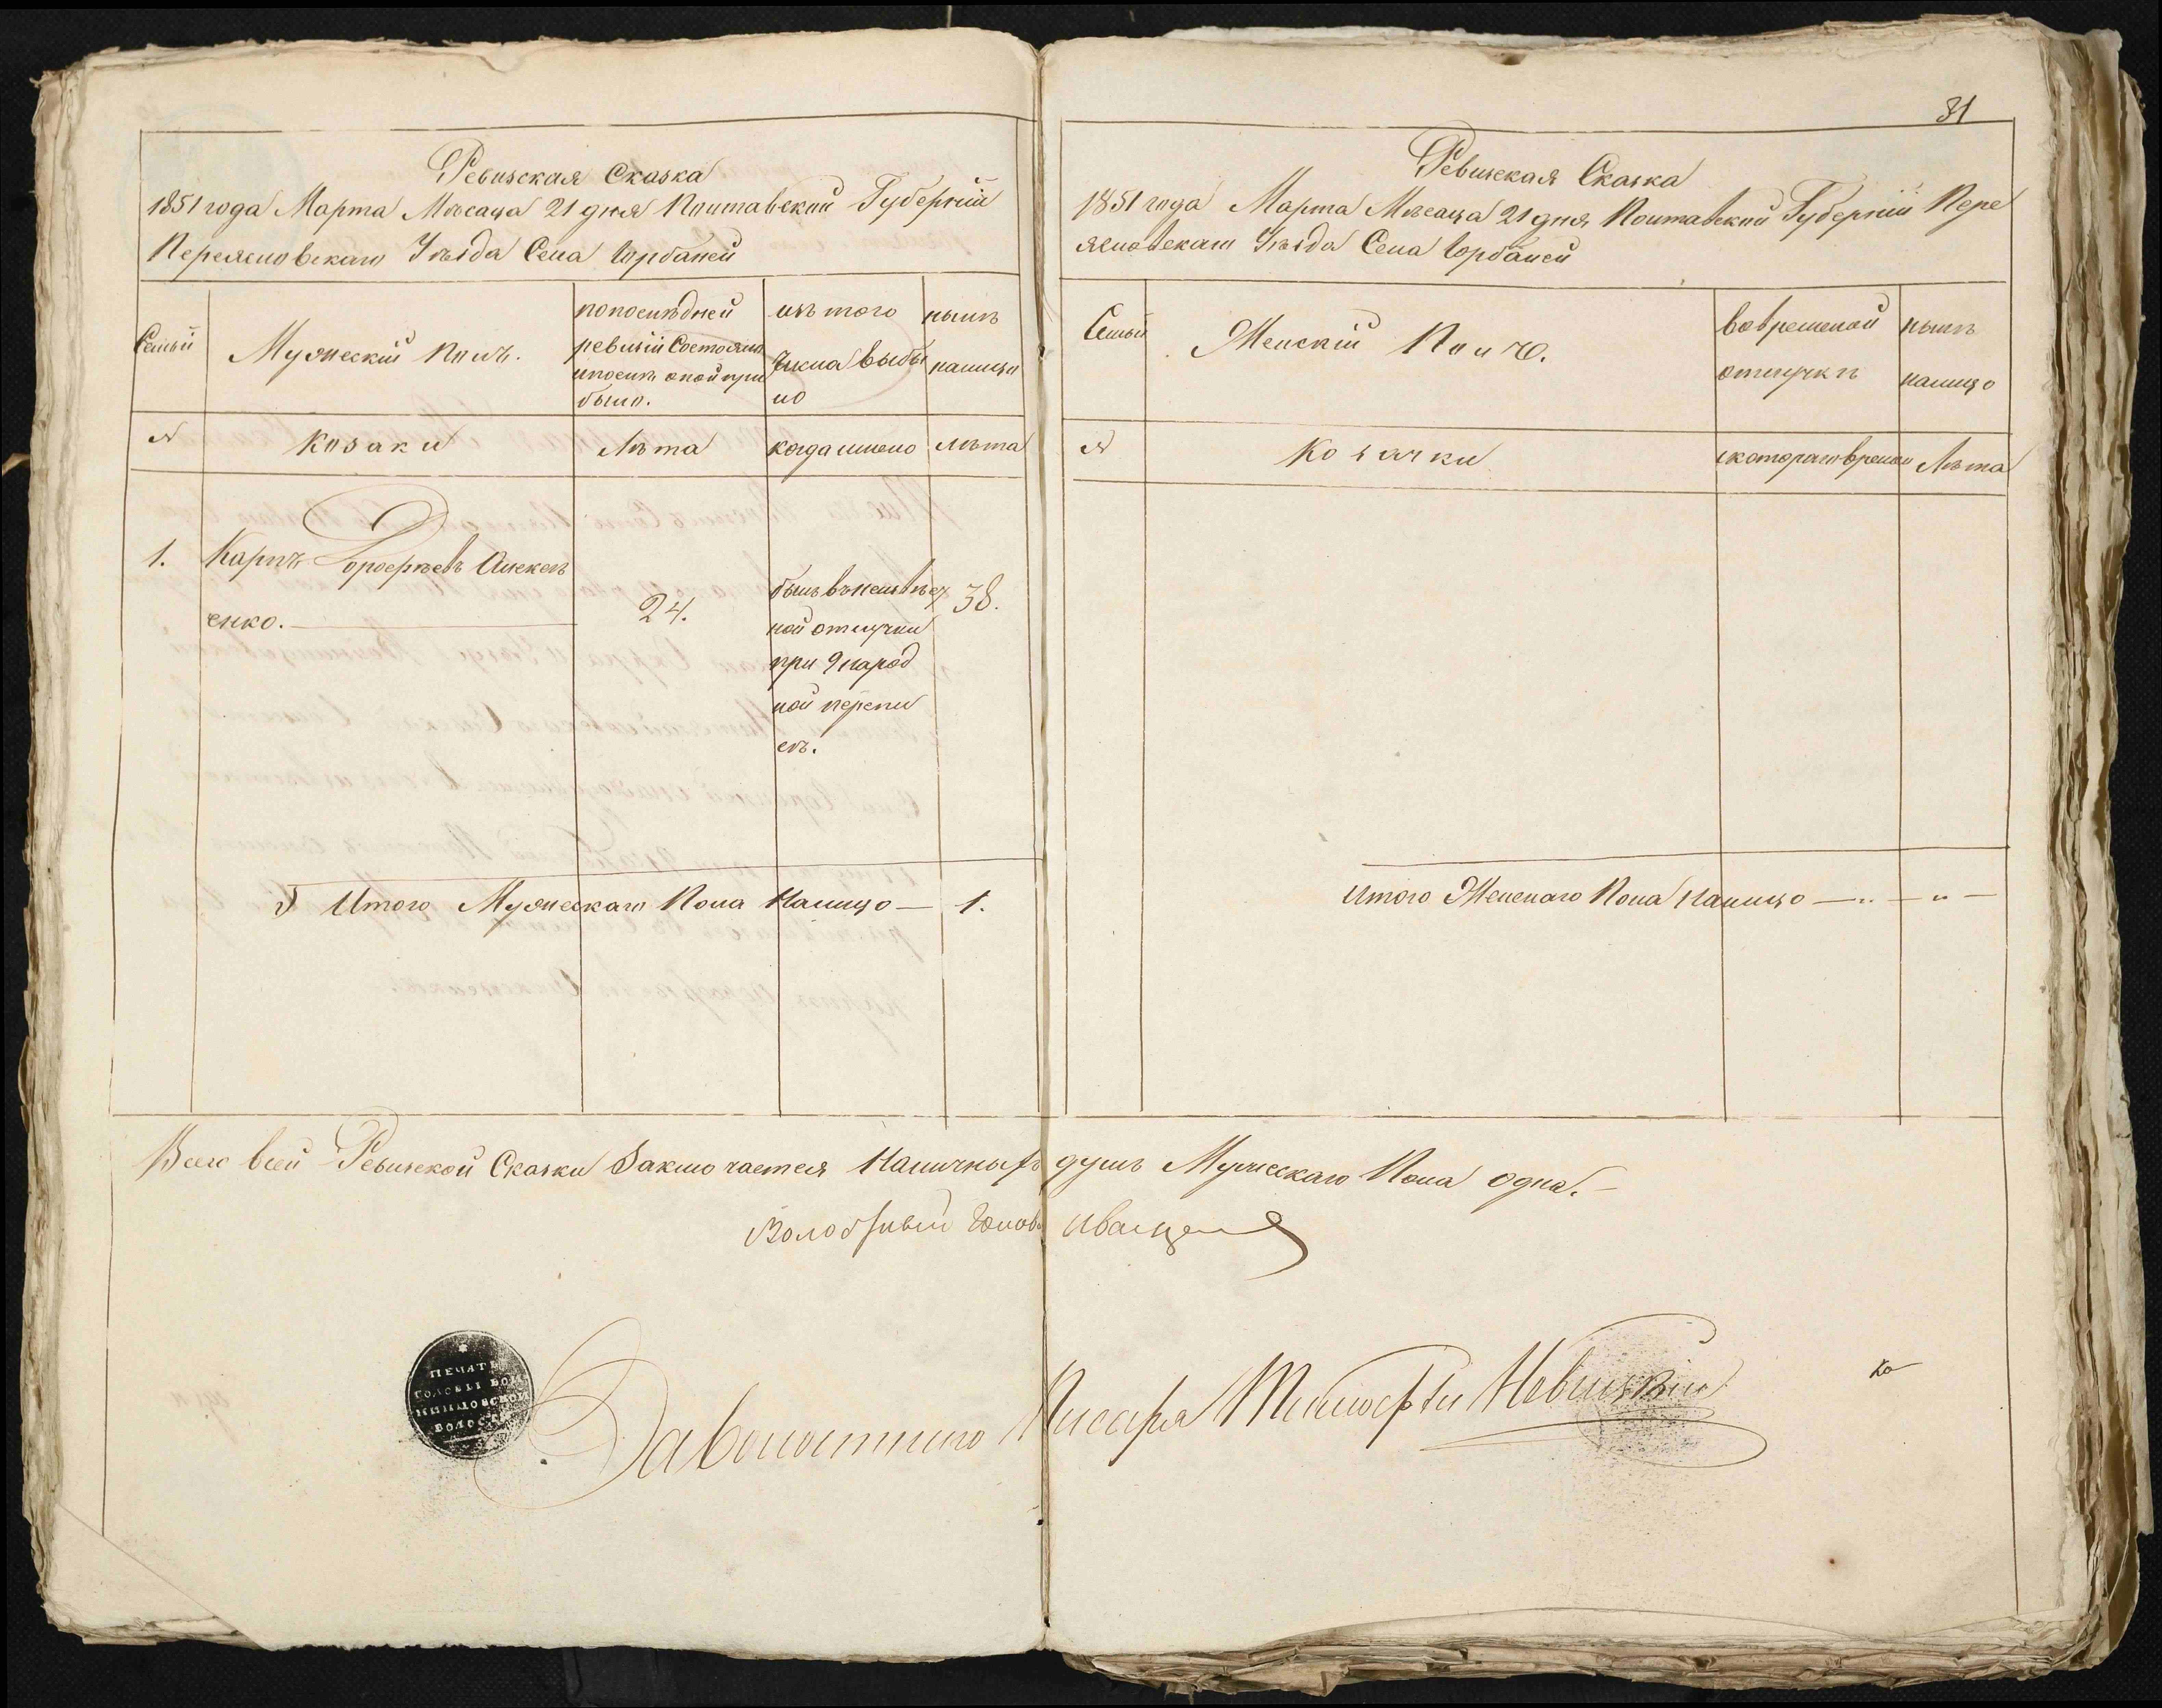 Ревизская Сказка
1851 года Марта Месаца 21 дня Полтавской Губерніи
Переясловскаго Уѣзда Села Горбаней
Семьи
Мужескій Полъ.
попослѣдней
ревизіи Состояло
ипослѣ оной при
было.
изъ того
числа выбы
ло
нынѣ
налицо
№
Козаки
Лѣта
когда имено
лѣта
1.
Карпъ Дорофѣевъ Алексѣ
енко.
24.
былъ въ неизвѣст
ной отлучки
при 9 народ
ной перепи
сѣ.
38.
Итого Мужескаго Пола Налицо — 1.
81
Ревизская Сказка
1851 года Марта Мѣсаца 21 дня Полтавской Губерніи Пере
ясловскаго Уѣзда Села Горбаней
Семьи
Женскій Полъ.
вовременой
отлучкѣ
нынѣ
налицо
№
Козачки
скотораго времени
Лѣта
Итого Женскаго Пола Налицо — " — " —
Всего всей Ревизской Сказки Заключается Наличныхъ душъ Мужескаго Пола одна. —
Волостный Голова Иващенко
ПЕЧАТЬ
ГОЛОВЫ ВОЙ
НИНЦОВСКОЙ
ВОЛОСТИ
За волостного Писаря Тимофѣй Невицкій